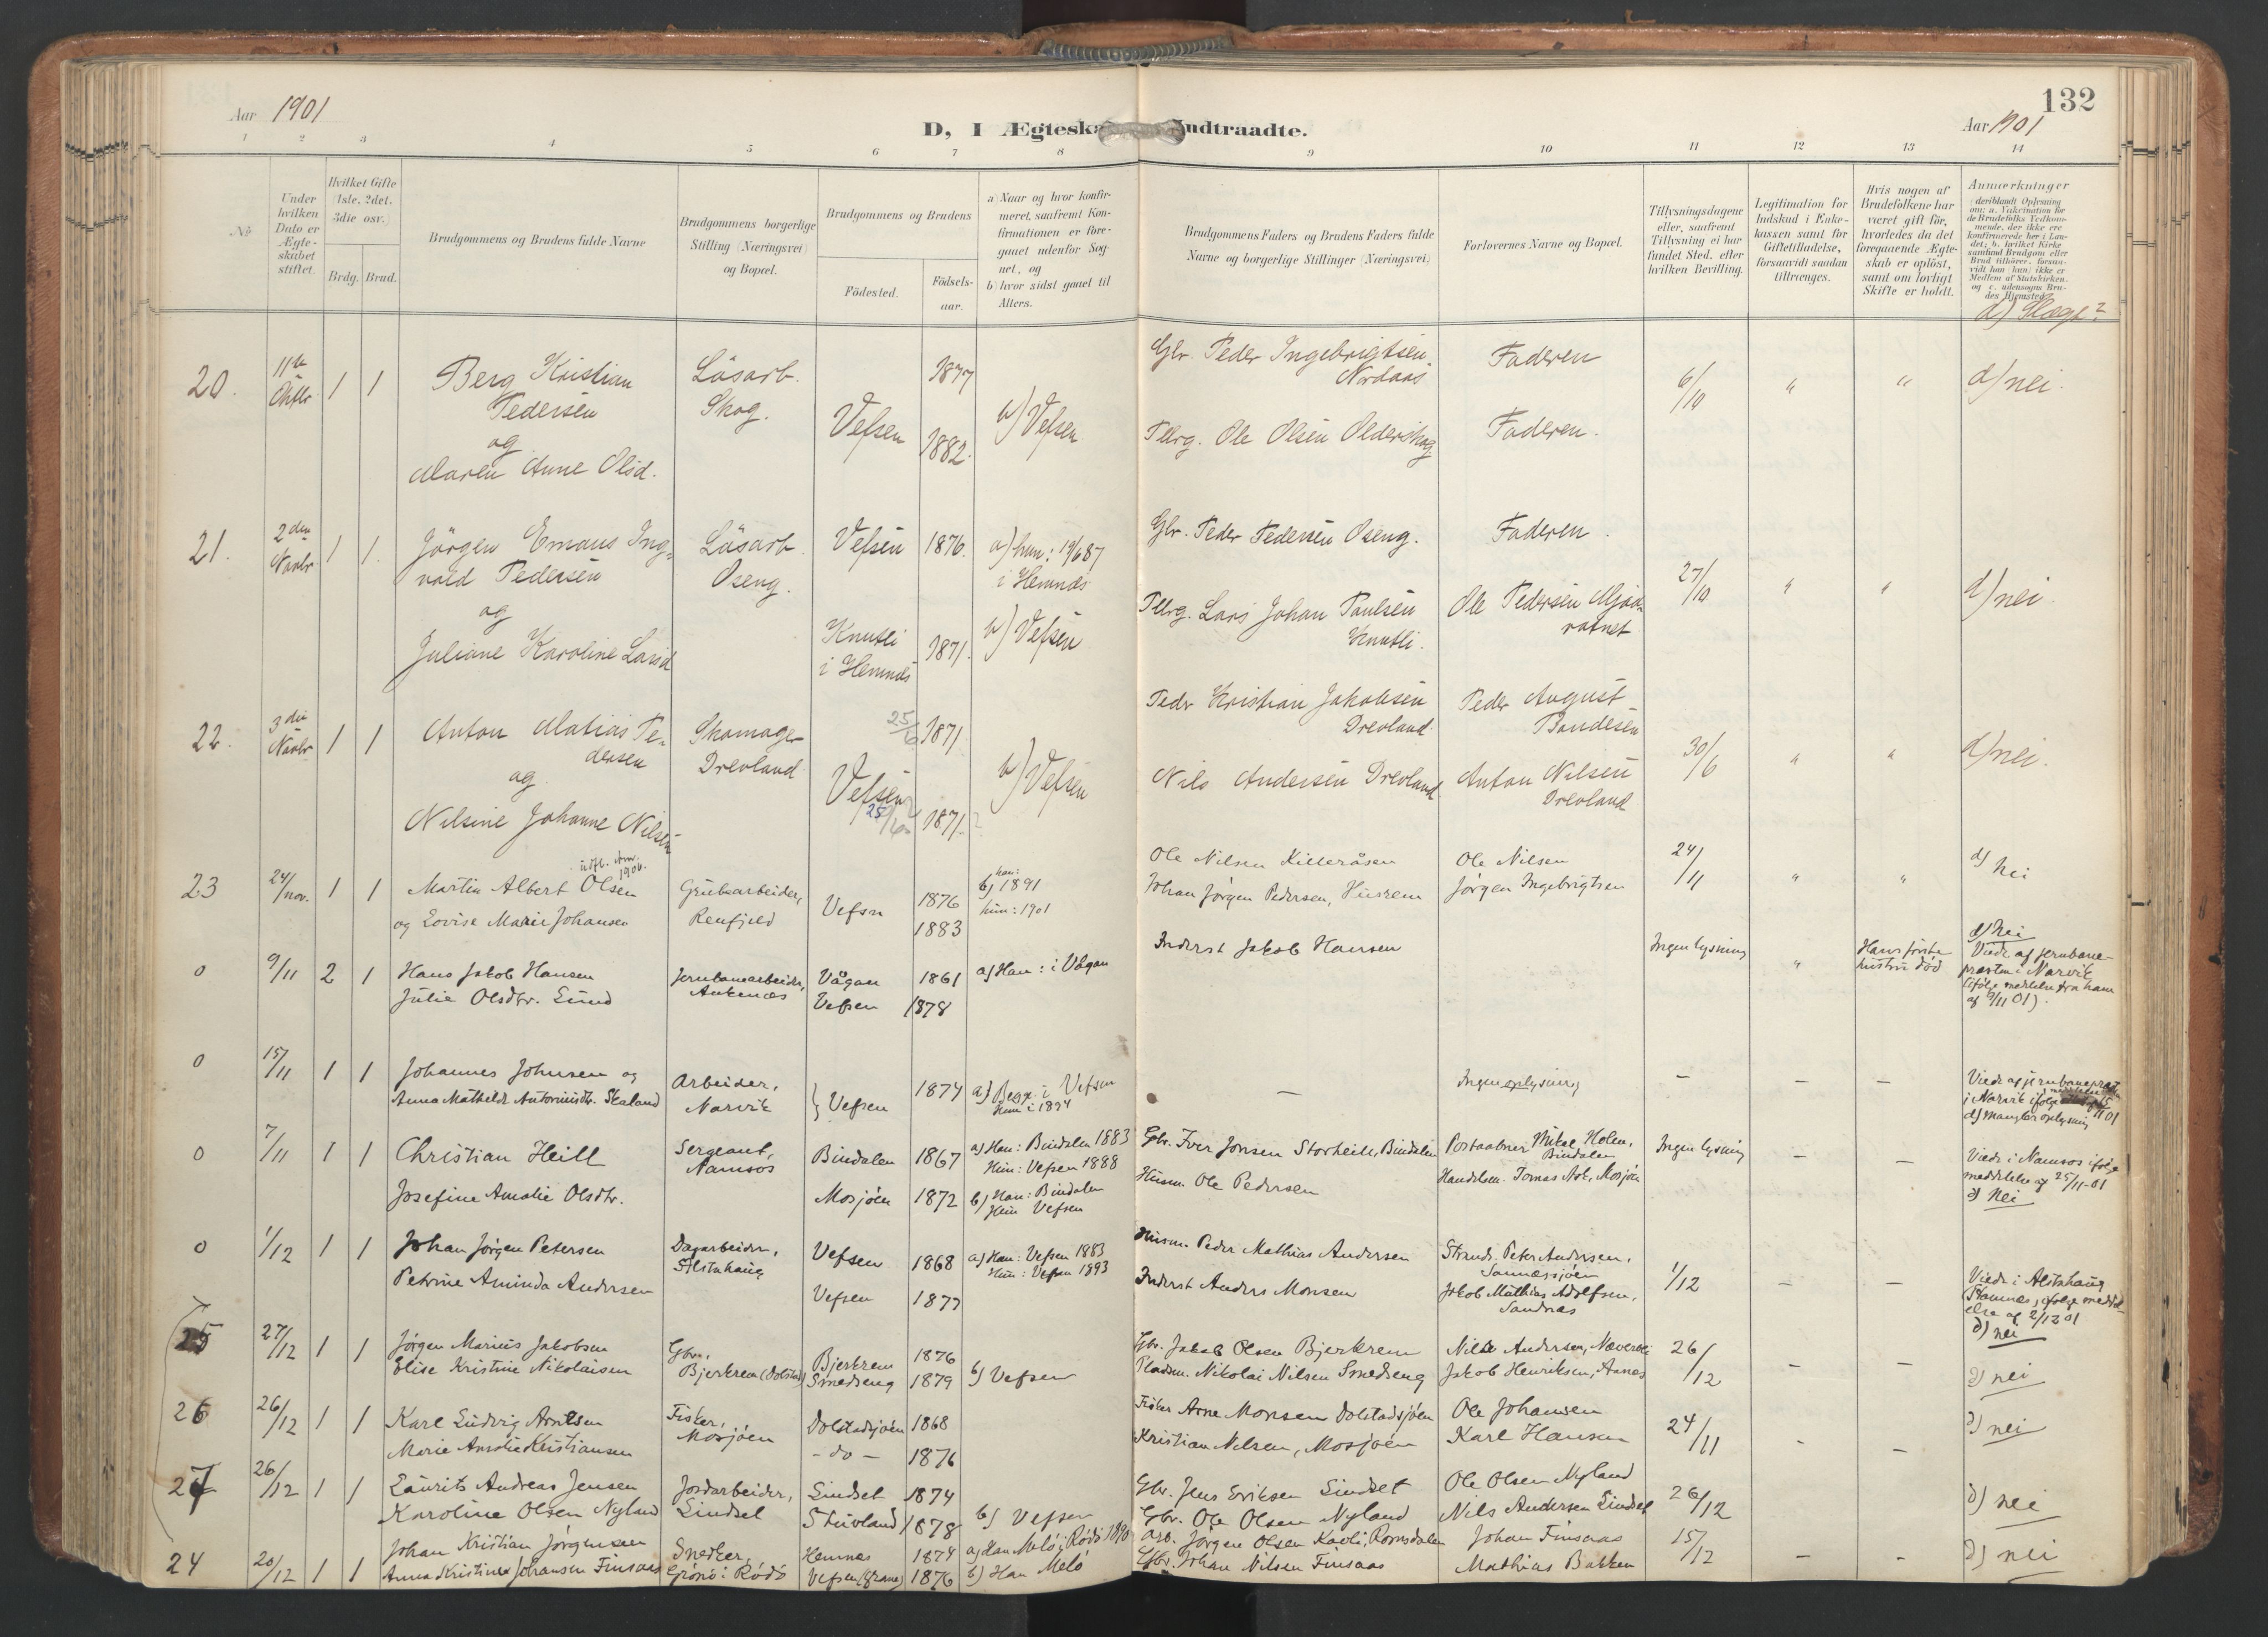 132
Aar 1901
D, I Ægteska
Indtraadte.
Aar 1901
1 2 3 4 5 6 7 8 9 10 11 12 13 14
No
Under hvilken Dato er Ægteskabet stiftet.
Hvilket Gifte (1ste, 2det, 3die osv.)
Brdg. Brud.
Brudgommens og Brudens fulde Navne
Brudgommens borgerlige Stilling (Næringsvei) og Bopæl.
Brudgommens og Brudens
Födested.
Födsels-aar.
a) Naar og hvor konfirmeret, saafremt Konfirmationen er foregaaet udenfor Sognet, og
b) hvor sidst gaaet til Alters.
Brudgommens Faders og Brudens Faders fulde Navne og borgerlige Stillinger (Næringsvei)
Forlovernes Navne og Bopæl.
Tillysningsdagene eller, saafremt Tillysning ei har fundet Sted, efter hvilken Bevilling.
Legitimation for Indskud i Enkekassen samt for Giftetilladelse, forsaavidt saadan tiltrænges.
Hvis nogen af Brudefolkene har været gift før, hvorledes da det foregaaende Ægteskab er oplöst, samt om lovligt Skifte er holdt.
Anmærkninger
deriblandt Oplysning om: a. Vakcination for de Brudefolks Vedkommende, der ikke ere konfirmerede her i Landet; b. hvilket Kirkesamfund Brudgom eller Brud tilhörer, forsaavidt han (hun) ikke er Medlem af Statskirken, og c. udensogns Brudes Hjemsted.
d) Slægt?
20. 11te Oktbr 1 1 Berg Kristian Pedersen
og
Maren Anne Olsd.
Läsarb. Skog.
Vefsen
1877
1882.
b) Vefsen
Gbr. Peder Ingebrigtsen Nordaas
Tllrg. Ole Olsen Olderskog
Faderen
Faderen.
6/10 " " d) nei.
21. 2den Novbr 1 1. Jörgen Emaus Ingvald Pedersen
og
Juliane Karoline Larsd
Läsarb. Oseng.
Vefsen 1876.
Knutli i Hemnes 1871.
a) hun: 19/6 87 i Hemnæs
b) Vefsen
Gbr. Peder Pedersen Oseng.
Tllrg. Lars Johan Paulsen Knutli.
Faderen.
Ole Pedersen Mjaavatnet
27/10 " " d) nei.
22. 3die Novbr 1 1 Anton Matias Pedersen
og
Nilsine Johanne Nilsen
Skomager Drevland
25/6 1871
Vefsen
25/6 1871.
b) Vefsen
Peder Kristian Jakobsen Drevland.
Nils Andersen Drevland
Peder August Bendesen
Anton Nilsen Drevland
30/6 " " d) nei.
23 24/nov. 1 1 Martin Albert Olsen
udfl. Am. 1906.
og Lovise Marie Johansen
Grubearbeider, Renfjeld
Vefsn
1876
1883
b) han: 1891
hun: 1901
Ole Nilsen Killeråsen
Johan Jørgen Pedersen, Husrem
Ole Nilsen
Jørgen Ingebrigtsen
24/11 " " d) Nei
0 9/11 2 1 Hans Jakob Hansen
Julie Olsdtr. Lund
Jernbanearbeider, Ankenæs
Vågan 1861
Vefsen 1878
a) Han: i Vågan
Inderst Jakob Hansen
Ingen lysning
"
Hans første hustru død
d) Nei
Viede af jernbanepresten i Narvik
(ifølge meddelelse fra ham
af 9/11 01).
0 15/11 1 1 Johannes Johnsen og
Anna Mathilde Antonisdtr. Skaland
Arbeider, Narvik
} Vefsen
1874
a) Begge i Vefsen
Hun i 1894
—
Ingen oplysning
— — —
Viede af jernbaneprest
i Narvik ifølge
d) mangler oplysning
0 7/11 1 1 Christian Heill
Josefine Amalie Olsdtr.
Sergeant, Namsos
Bindalen 1867
Mosjøen 1872
a) Han: Bindalen 1883
Hun: Vefsen 1888
b) Han: Bindalen
Hun Vefsen
Gbr. Iver Jonsen Storheill, Bindalen
Husm. Ole Pedersen
Postaabner Mikal Holm, Bindalen
Handelsm. Tomas Aot, Mosjøn
Ingen lysning
— —
Viede i Namsos ifølge
meddelelse af 25/11-01
d) Nei
0 1/12 1 1 Johan Jørgen Petersen
Petrine Aminda Andersen
Dagarbeider, Alstahaug
Vefsen 1868
Vefsen 1877
a) Han: Vefsen 1883
Hun: Vefsen 1893
Husm. Peder Mathias Andersen
Inderst Anders Monsen
Strands. Peter Andersen, Sannæssjøen
Jakob Mathias Adolfsen, Sandnæs
1/12 — —
Viede i Alstahaug
(Stamnæs), ifølge meddelelse af 2/12 01
d) nei
25 27/12 1 1 Jørgen Marius Jakobsen
Elise Kristine Nikolaisen
Gbr. Bjerkrem (Dolstad)
Bjerkrem 1876
Smedseng 1879
b) Vefsen
Gbr. Jakob Olsen Bjerkrem
Pladsm. Nikolai Nilsen Smedseng
Nils Andersen, Næverli
Jakob Henriksen, Aanæs
26/12 — — d) nei
26 26/12 1 1 Karl Ludvig Arntsen
Marie Amalie Kristiansen
Fisker, Mosjøen
Dolstadsjøen 1868
- do - 1876
Fisker Arne Monsen Dolstadsjøen
Kristian Nilsen, Mosjøen
Ole Johansen
Karl Hansen
24/11 - — d) nei
27 26/12 1 1 Laurits Andreas Jensen
Karoline Olsen Nyland
Jordarbeider, Lindset
Lindset 1874
Stuvland 1878
b) Vefsen
Gbr. Jens Eriksen Lindset
Gbr. Ole Olsen Nyland
Ole Olsen Nyland
Nils Andersen Lindset
26/12 d) nei
24 20/12 1 1 Johan Kristian Jørgensen
Anna Kristine Johansen Finsaas
Snedker, Grønø i Rødø
Hemnes 1874
Vefsen (Grane) 1876
a) Han Melø i Rødø 1890
b) Han Melø
Arb. Jørgen Olsen Kavli, Romsdalen
Gbr. Johan Nilsen Finsaas
Johan Finsaas
Mathias Bakken
15/12 — — d) nei